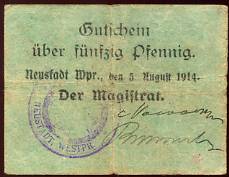 Gutschein
über fünfzig Pfennig.
Neustadt Wpr., den 5. August 1914.
Der Magistrat.
NEUSTADT WESTPR.